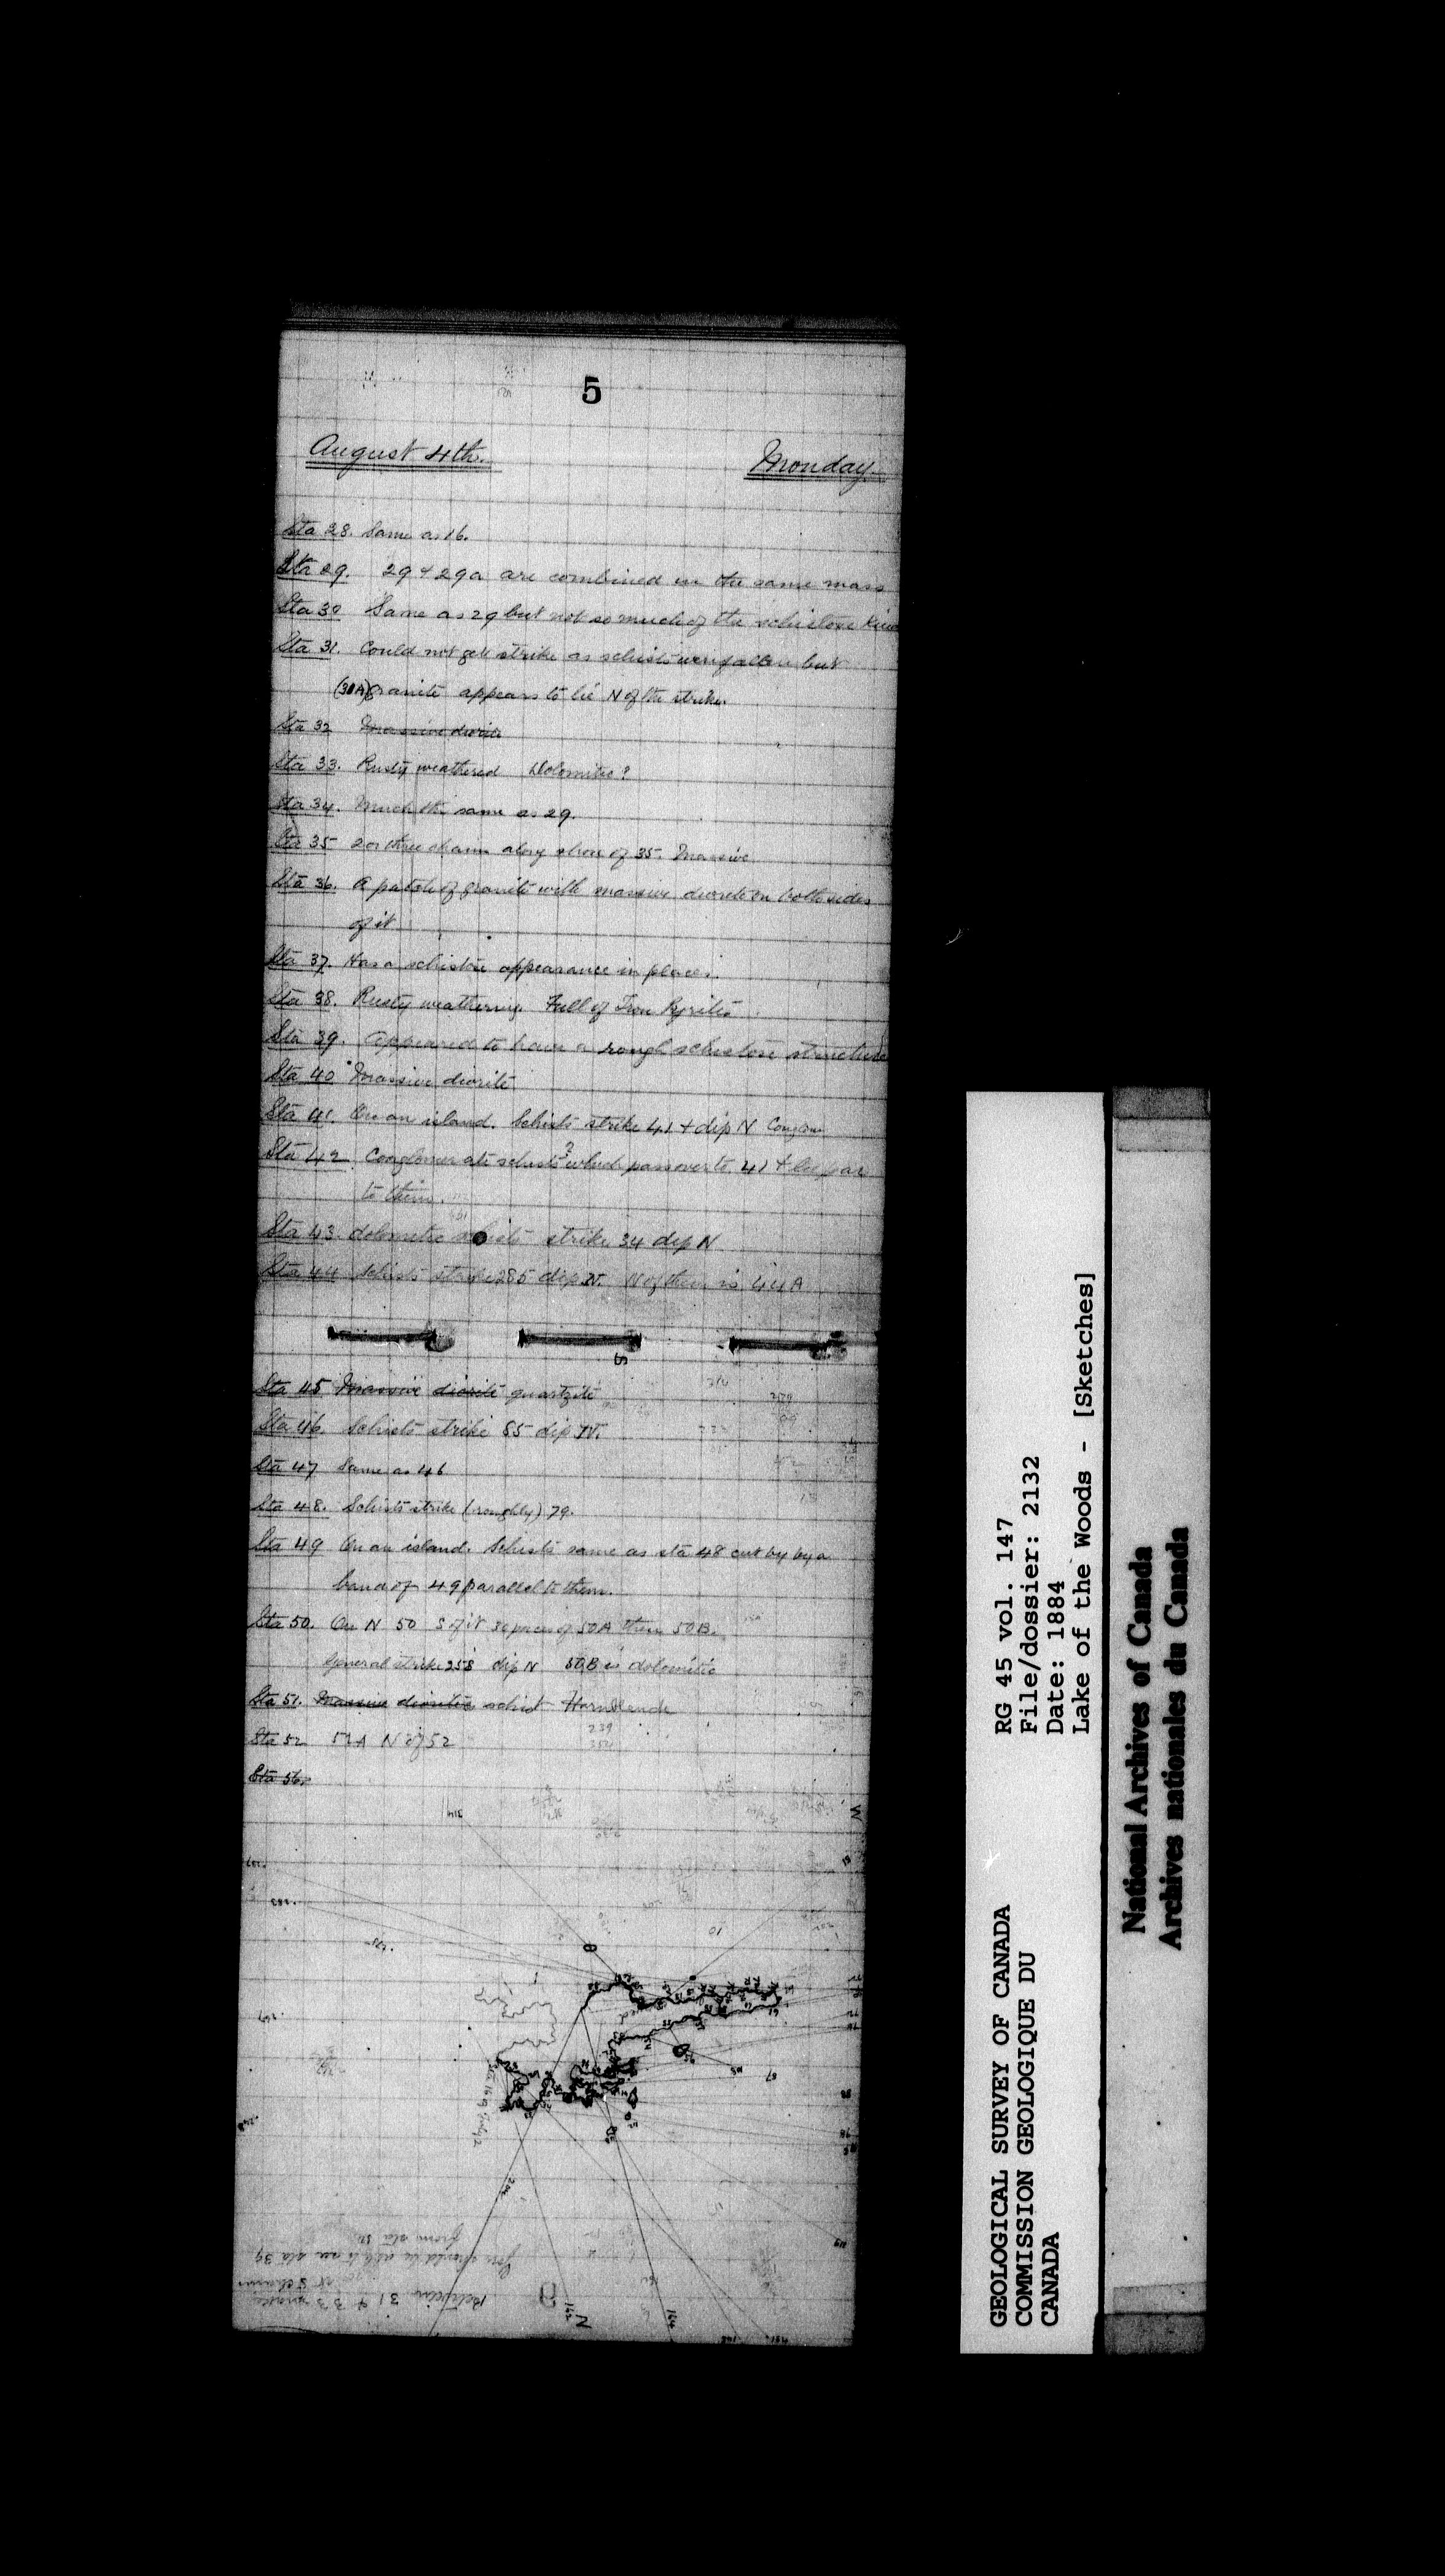 5
August 4th. Monday.
Sta 28. Same as 16.
Sta 29. 29 & 29a are combined in the same mass
Sta 30 Same as 29 but not so much of the schistose kind
Sta 31. Could not get strike as schists were fallen but
(31A) Granite appears to lie N of the strike.
Sta 32 Massive diorite
Sta 33. Rusty weathered Dolomitic?
Sta 34. Much the same as 29.
Sta 35 2 or three chains along shore of 35. Massive
Sta 36. A patch of granite with massive diorite on both sides
of it
Sta 37. Has a schistose appearance in places.
Sta 38. Rusty weathering. Full of Iron Pyrites
Sta 39. Appeared to have a rough schistose structure
Sta 40 Massive diorite
Sta 41. On an island. Schists strike 41 & dip N
Sta 42 Conglomerate schists? which pass over to 41 & lie par
to them.
Sta 43. dolomitic schists strike 34 dip N
Sta 44 Schists strike 285 dip N. N of them is 44A
Sta 45 Massive diorite quartzite
Sta 46. Schists strike 85 dip N.
Sta 47 Same as 46
Sta 48. Schists strike (roughly) 79.
Sta 49 On an island. Schists same as sta 48 cut by by a
band of 49 parallel to them.
Sta 50. On N 50 S of it 30 paces of 50A then 50B.
General strike 258 dip N 50B is dolomitic
Sta 51. Massive dioritic schist Hornblende
Sta 52 52A N of 52
Sta 56.
239
354
314
283
B
10
W
N
Between 31 & 33
from sta
GEOLOGICAL SURVEY OF CANADA
COMMISSION GEOLOGIQUE DU
CANADA
RG 45 vol. 147
File/dossier: 2132
Date: 1884
Lake of the Woods - [Sketches]
National Archives of Canada
Archives nationales du Canada